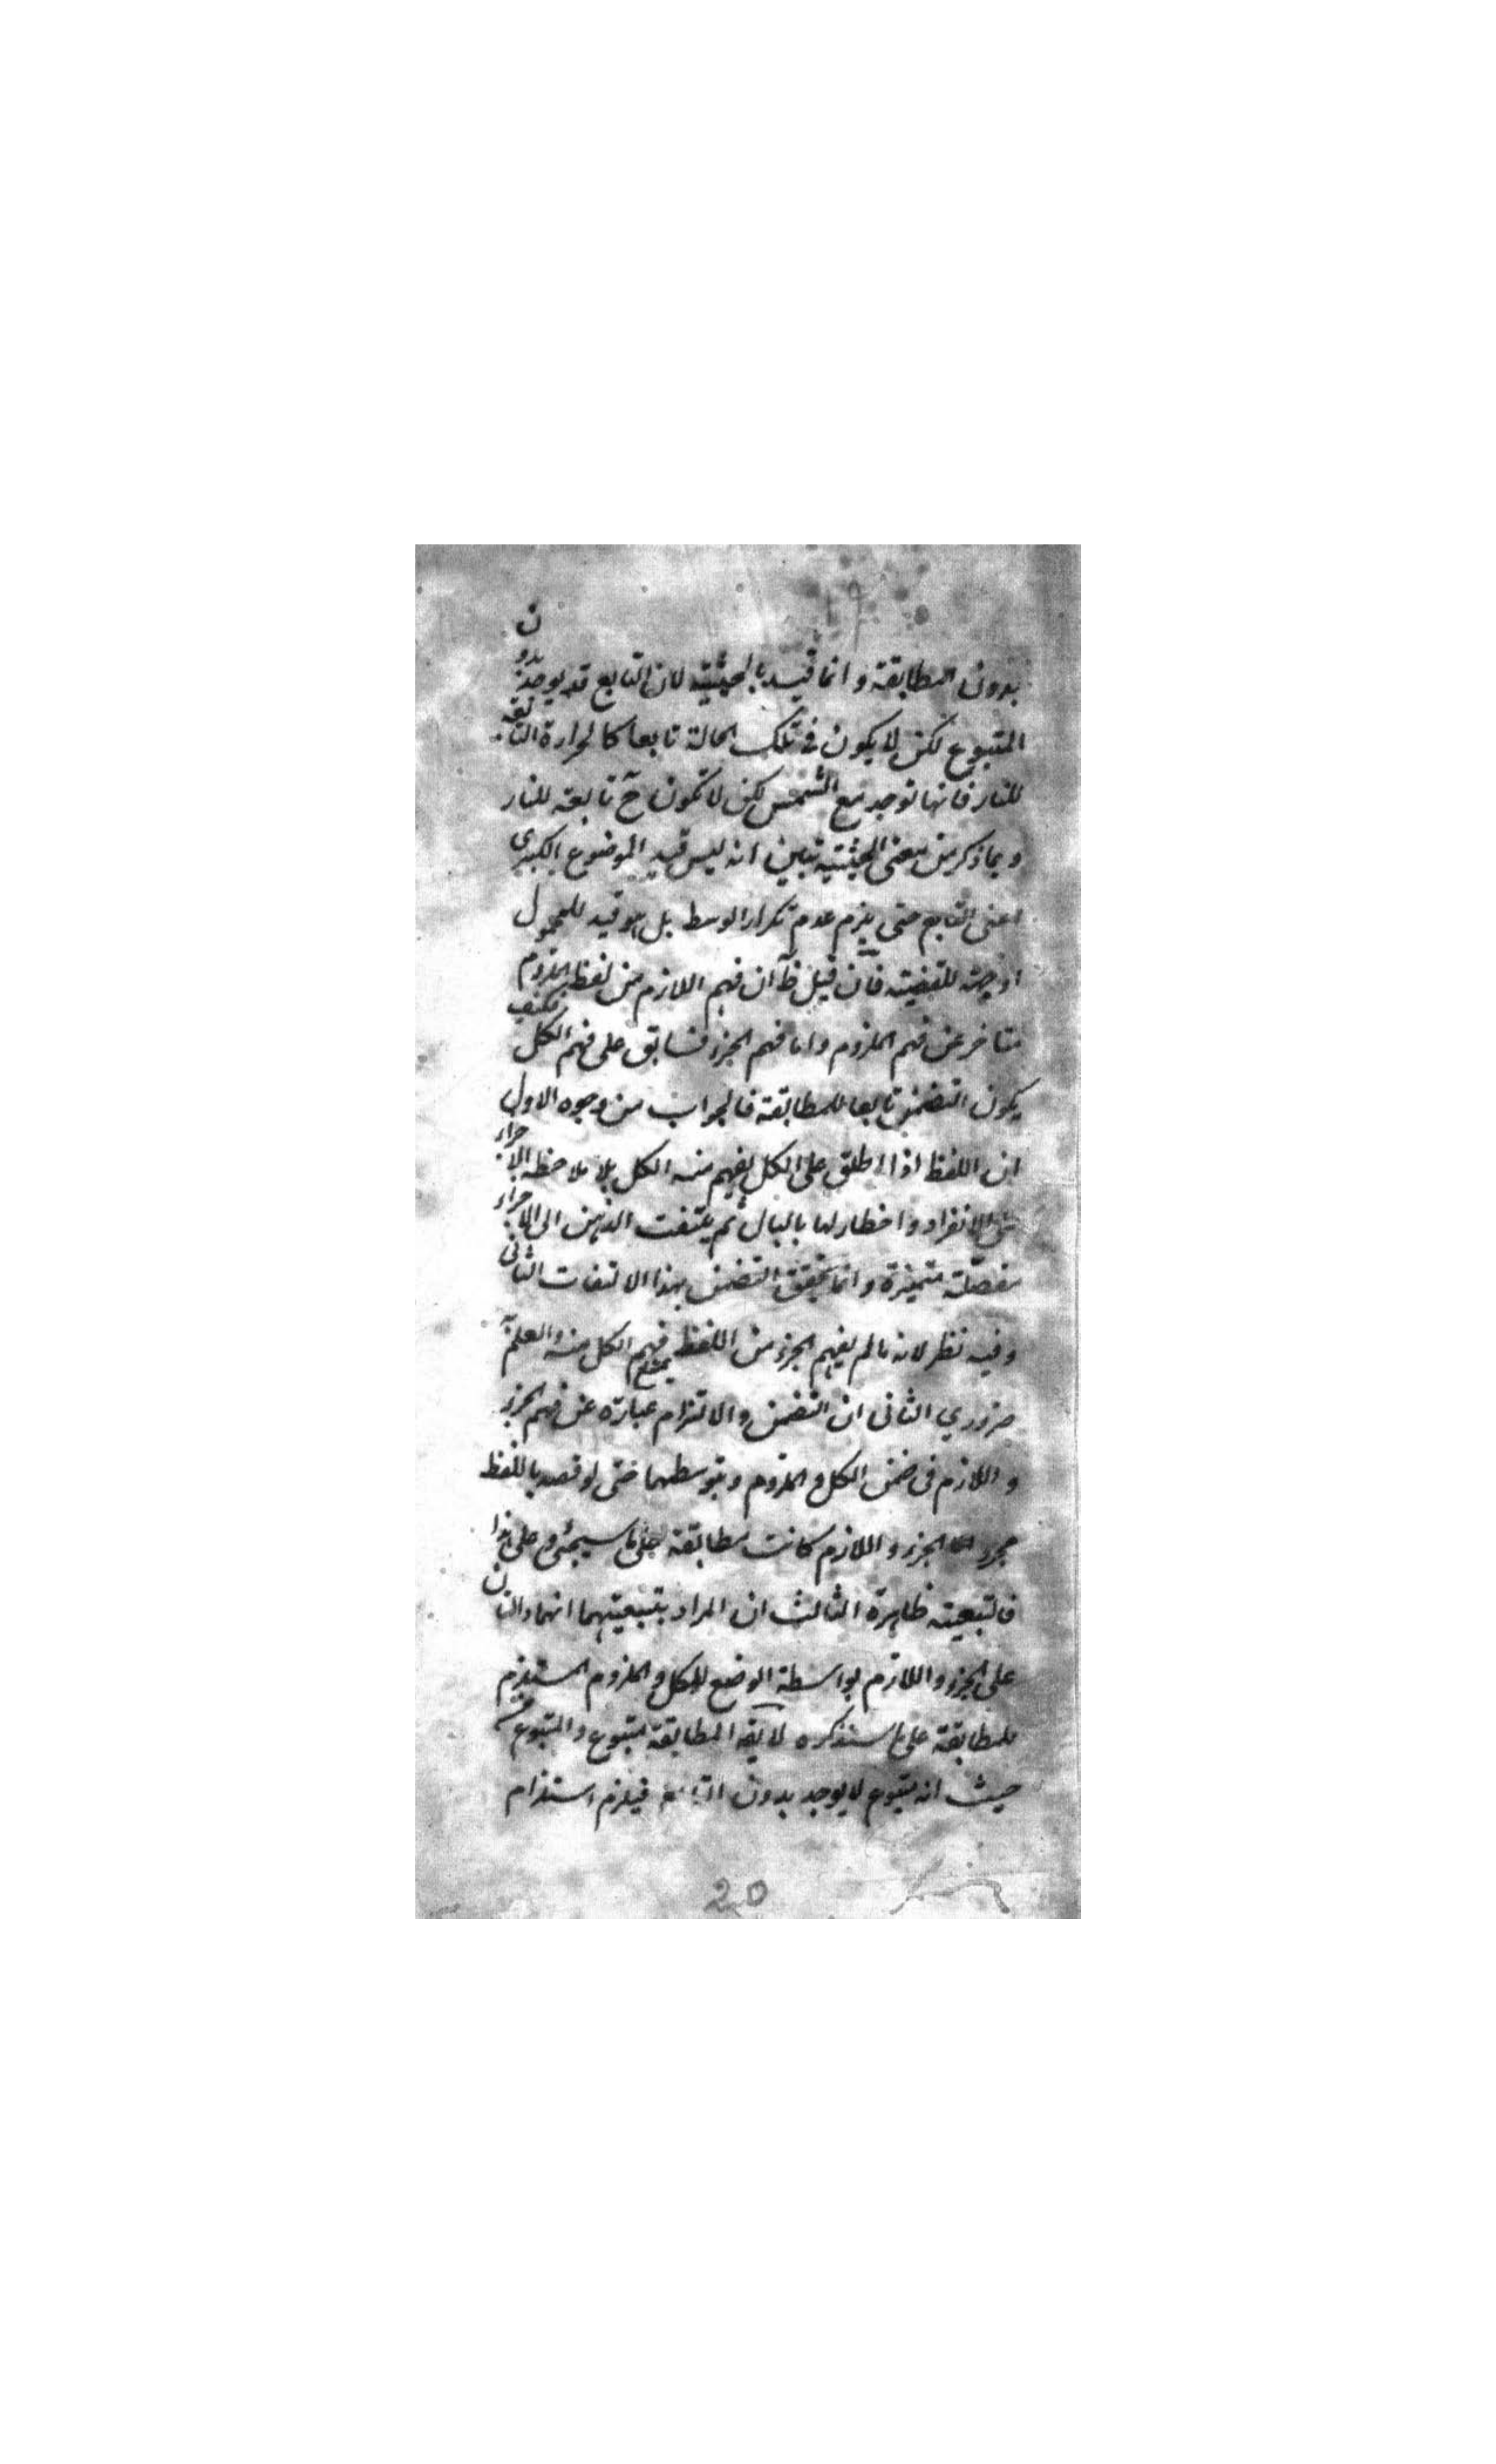 بدون المطابقة وانما قيد بالحيثية لان التابع قد يوجد بدون
المتبوع لكن لا يكون فى تلك الحالة تابعا كالحرارة التابعة
للنار فانها توجد مع الشمس لكن لا تكون ح تابعة للنار
وبما ذكر من معنى الحيثية تبين انه ليس قيد الموضوع الكبرى
اعنى التابع حتى يلزم عدم تكرار الوسط بل هو قيد للمحمول
او جهة للقضية فان قيل ظ ان فهم اللازم من لفظ الملزوم
متاخر عن فهم الملزوم واما فهم الجزء فسابق على فهم الكل فكيف
يكون التضمن تابعا للمطابقة فالجواب من وجوه الاول
ان اللفظ اذا اطلق على الكل يفهم منه الكل بلا ملاحظة الاجزاء
على الانفراد واخطارها بالبال ثم يلتفت الذهن الى الاجزاء
مفصلة متميزة وانما يتحقق التضمن بهذا الالتفات الثانى
وفيه نظر لانه ما لم يفهم الجزء من اللفظ يمتنع فهم الكل منه والعلم به
ضرورى الثانى ان التضمن والالتزام عبارة عن فهم الجزء
واللازم فى ضمن الكل والملزوم وبتوسطهما حتى لو قصد باللفظ
مجرد الجزء واللازم كانت مطابقة على ما سيجئ وعلى هذا
فالتبعية ظاهرة الثالث ان المراد بتبعيتهما انهما دالتان
على الجزء واللازم بواسطة الوضع للكل والملزوم المستلزم
للمطابقة على ما سنذكره لا يقه المطابقة متبوع والمتبوع من
حيث انه متبوع لا يوجد بدون التابع فيلزم استلزام
20